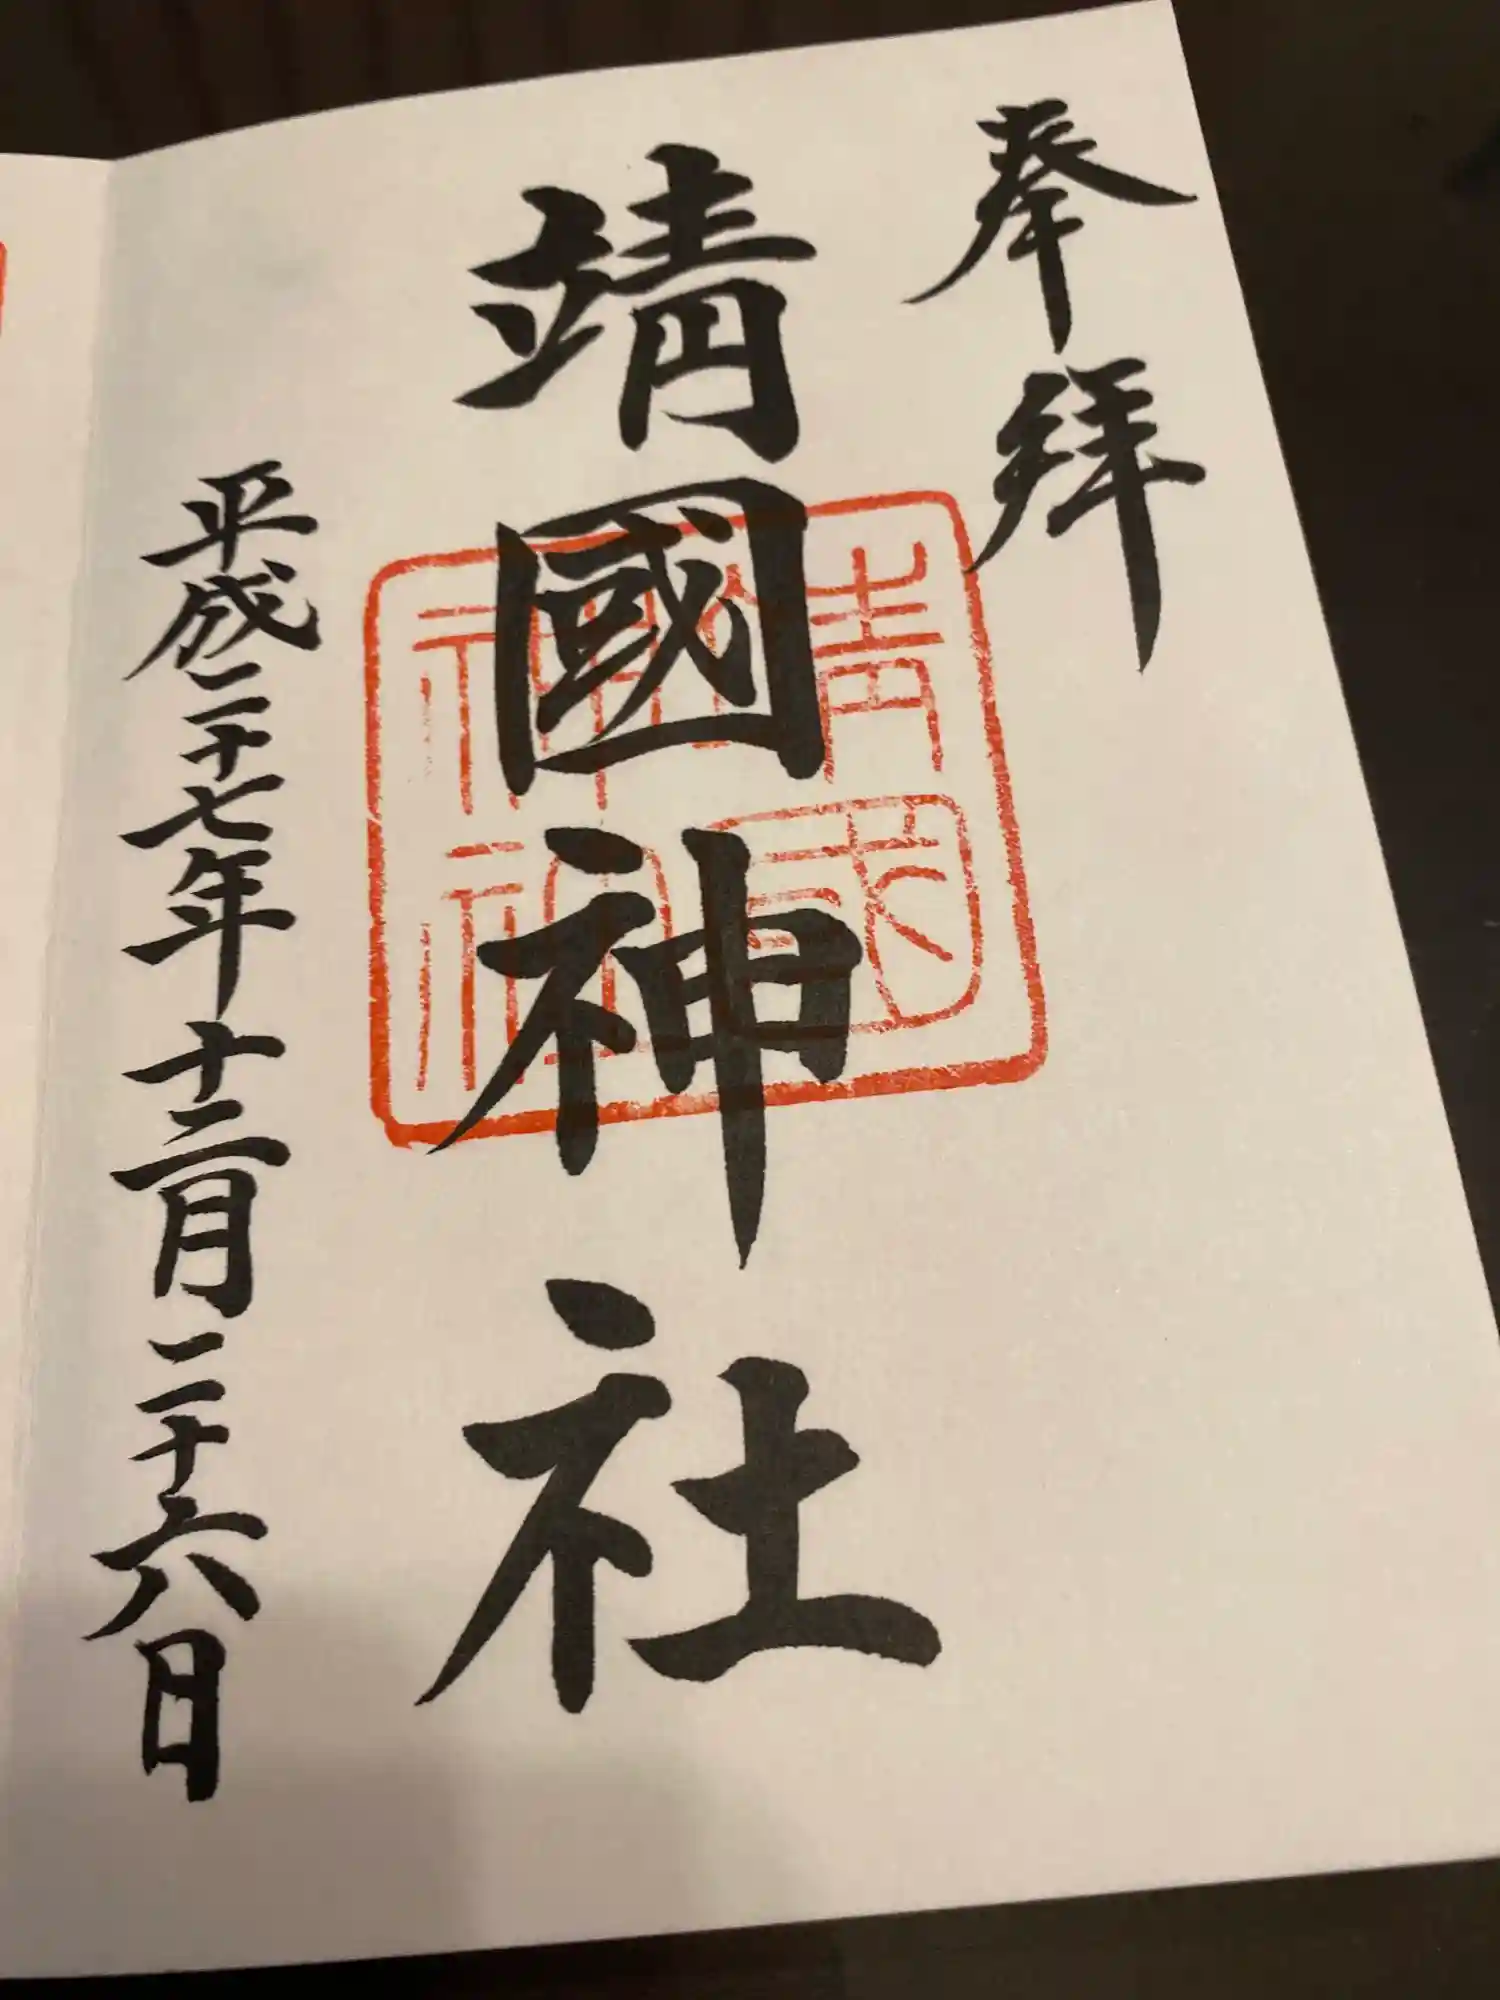 奉拝
靖國神社
靖国神社
平成二十七年十二月二十六日